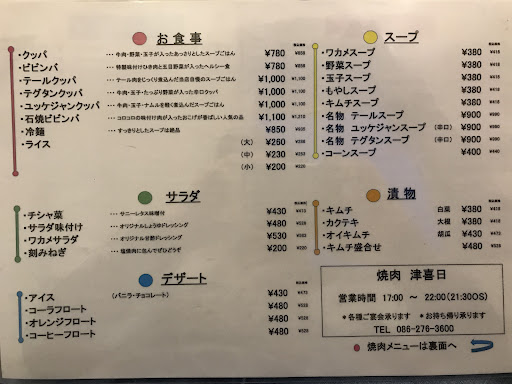 お食事
・クッパ ・・・牛肉・野菜・玉子が入ったあっさりとしたスープごはん ¥780
・ビビンバ ・・・特製味付けひき肉と五目野菜が入ったヘルシー食 ¥780
・テールクッパ ・・・テール肉をじっくり煮込んだ当店自慢のスープごはん ¥1,000 ¥1,100
・テグタンクッパ ・・・牛肉・玉子・たっぷり野菜が入った辛口クッパ ¥1,000 ¥1,100
・ユッケジャンクッパ ・・・牛肉・玉子・ナムルを軽く煮込んだスープごはん ¥1,000 ¥1,100
・石焼ビビンバ ・・・コロコロの味付け肉が入ったおこげが香ばしい人気の品 ¥1,100 ¥1,210
・冷麺 ・・・すっきりとしたスープは絶品 ¥850 ¥935
・ライス (大) ¥260
(中) ¥230
(小) ¥200 ¥220
スープ
・ワカメスープ ¥380 ¥418
・野菜スープ ¥380 ¥418
・玉子スープ ¥380 ¥418
・もやしスープ ¥380 ¥418
・キムチスープ ¥380 ¥418
・名物 テールスープ ¥900 ¥990
・名物 ユッケジャンスープ (辛口) ¥900 ¥990
・名物 テグタンスープ (辛口) ¥900 ¥990
・コーンスープ ¥400 ¥440
サラダ
・チシャ菜 ・・・サニーレタス味噌付 ¥430 ¥473
・サラダ味付け ・・・オリジナルしょうゆドレッシング ¥480 ¥528
・ワカメサラダ ・・・オリジナル甘酢ドレッシング ¥530 ¥583
・刻みねぎ ・・・塩焼肉に包んでぜひどうぞ ¥200 ¥220
漬物
・キムチ 白菜 ¥380 ¥418
・カクテキ 大根 ¥380 ¥418
・オイキムチ 胡瓜 ¥430 ¥473
・キムチ盛合せ ¥480 ¥528
デザート
・アイス (バニラ・チョコレート) ¥430 ¥473
・コーラフロート ¥480 ¥528
・オレンジフロート ¥480 ¥528
・コーヒーフロート ¥480 ¥528
焼肉 津喜日
営業時間 17:00 ～ 22:00(21:30OS)
*各種ご宴会承ります *お持ち帰り承ります
TEL 086-276-3600
焼肉メニューは裏面へ